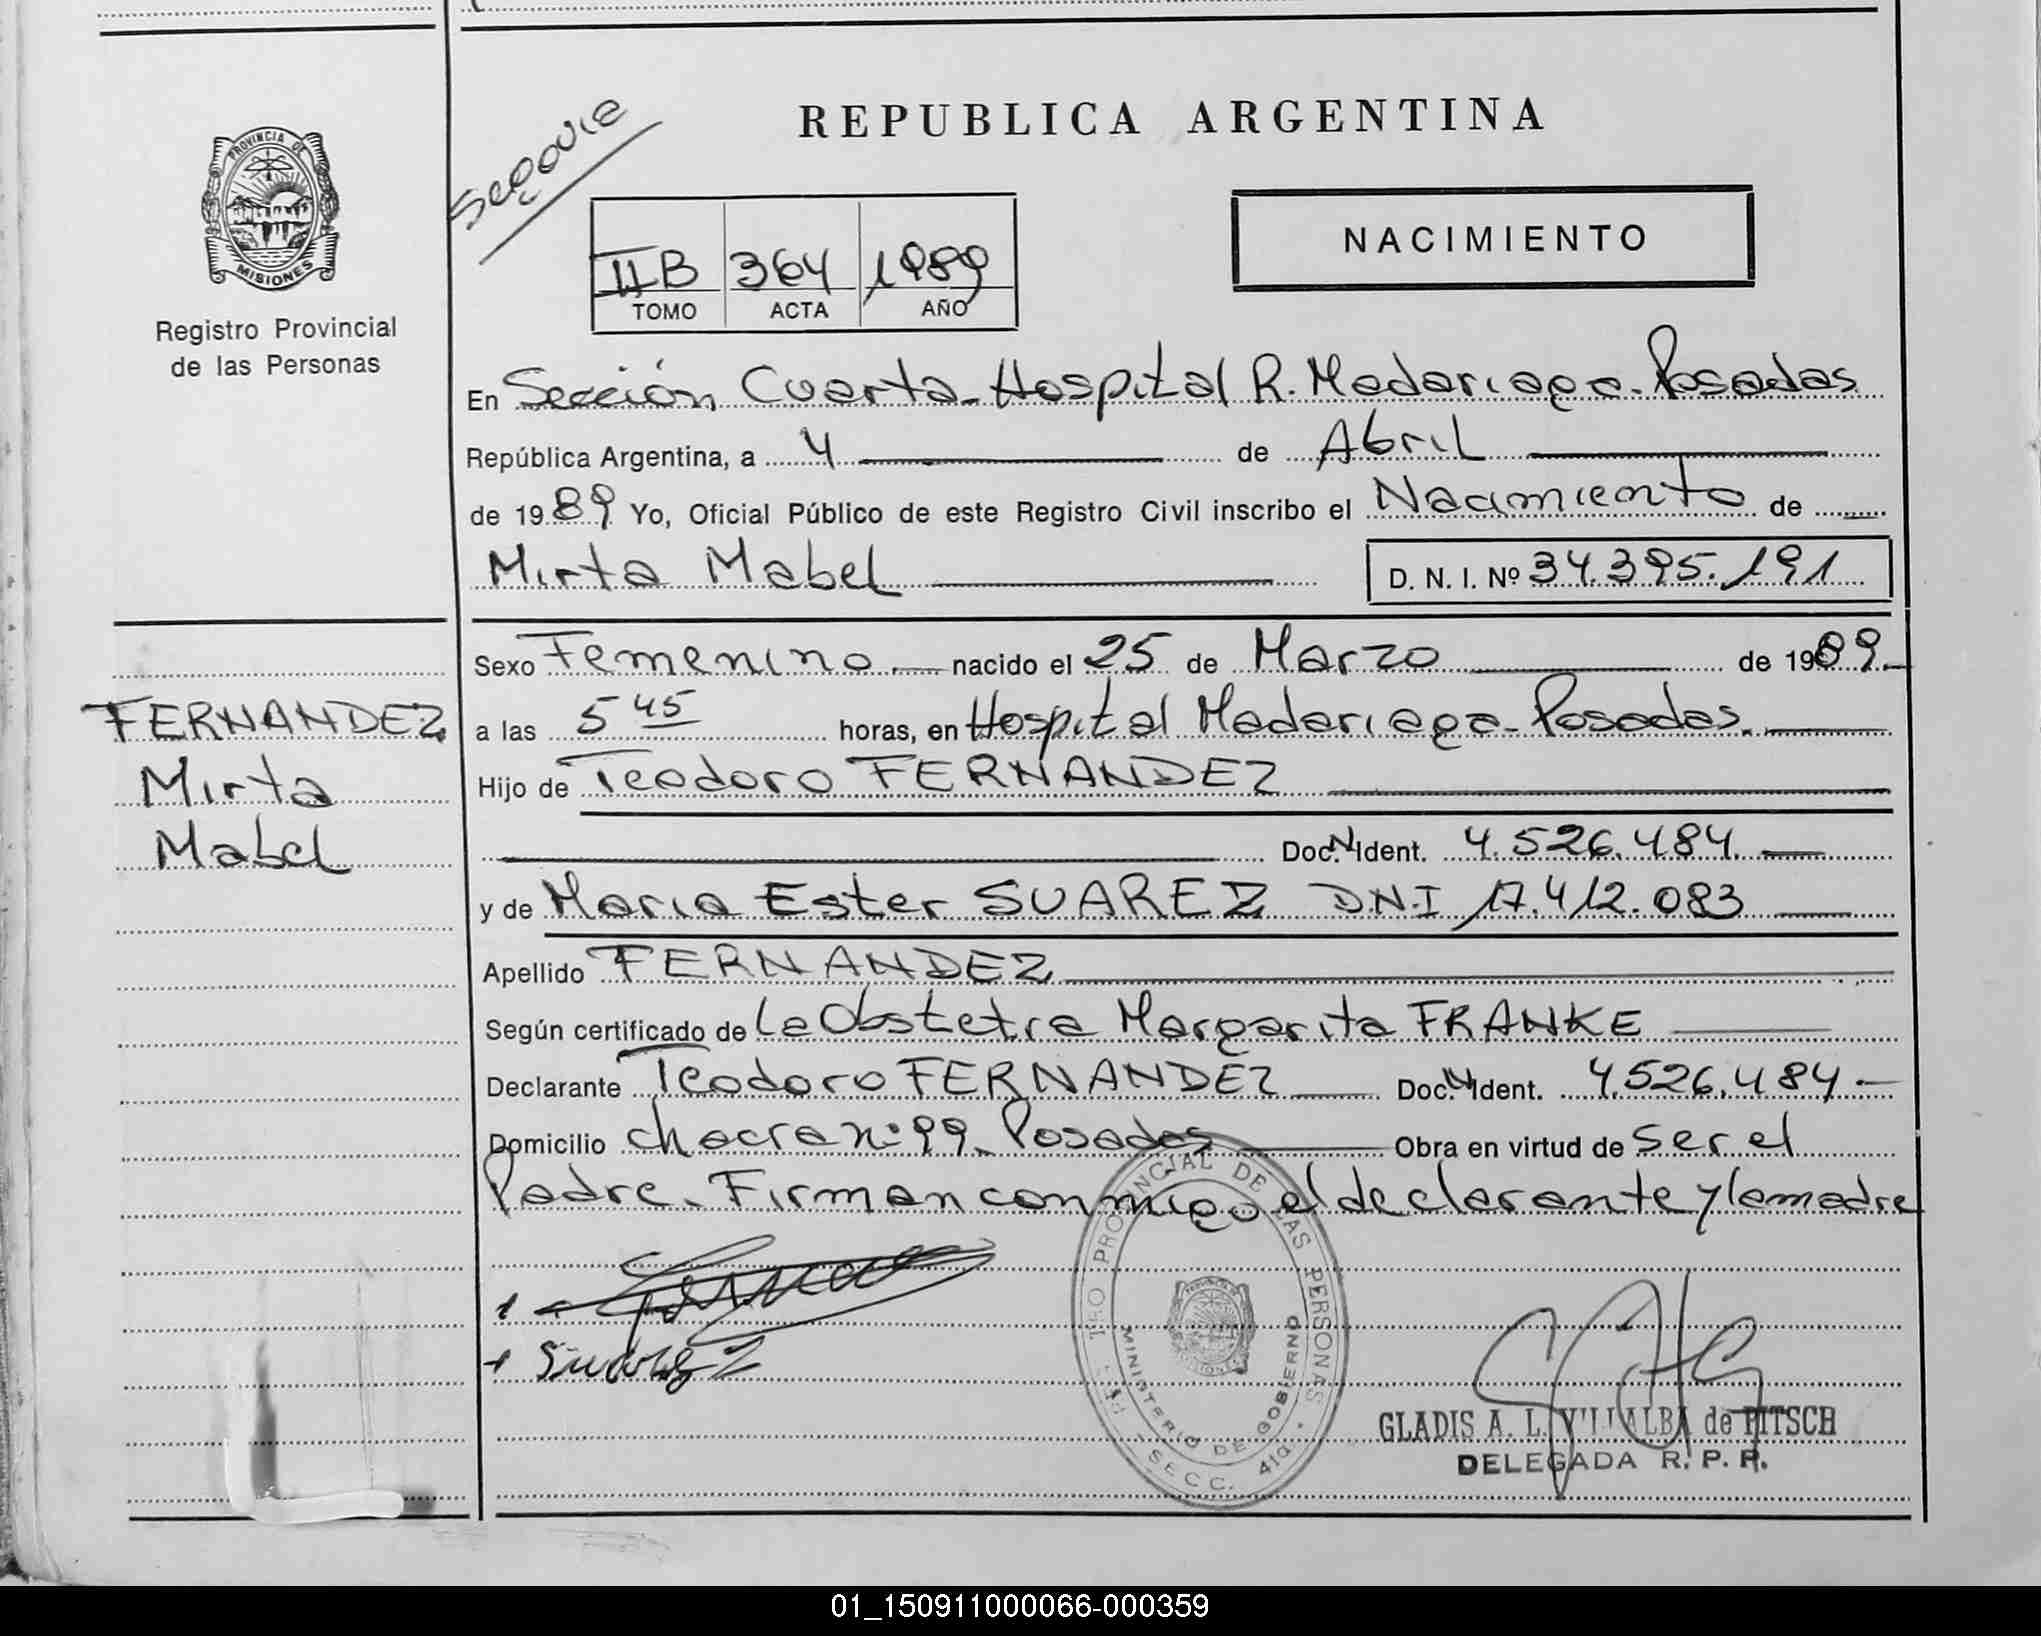 REPUBLICA ARGENTINA
Segovia
PROVINCIA DE
MISIONES
Registro Provincial
de las Personas
IIB 364 1989
TOMO ACTA AÑO
NACIMIENTO
En Sección Cuarta- Hospital R. Madariaga- Posadas
República Argentina, a 4 de Abril
de 1989 Yo, Oficial Público de este Registro Civil inscribo el Nacimiento de
Mirta Mabel D. N. I. Nº 34.395.191
Sexo Femenino nacido el 25 de Marzo de 1989.-
FERNANDEZ
Mirta
Mabel
a las 5 45 horas, en Hospital Madariaga- Posadas.
Hijo de Teodoro FERNANDEZ
Doc. N Ident. 4.526.484.
y de Maria Ester SUAREZ DNI 17.412.083
Apellido FERNANDEZ
Según certificado de La Obstetra Margarita FRANKE
Declarante Teodoro FERNANDEZ Doc. N Ident. 4.526.484.-
Domicilio chacra nº 99- Posadas Obra en virtud de ser el
Padre. Firman conmigo el declarante y la madre
Suarez
PROVINCIAL DE LAS PERSONAS
MINISTERIO DE GOBIERNO
SECC. 4ta
GLADIS A. L. VILLALBA de PITSCH
DELEGADA R. P. P.
01_150911000066-000359